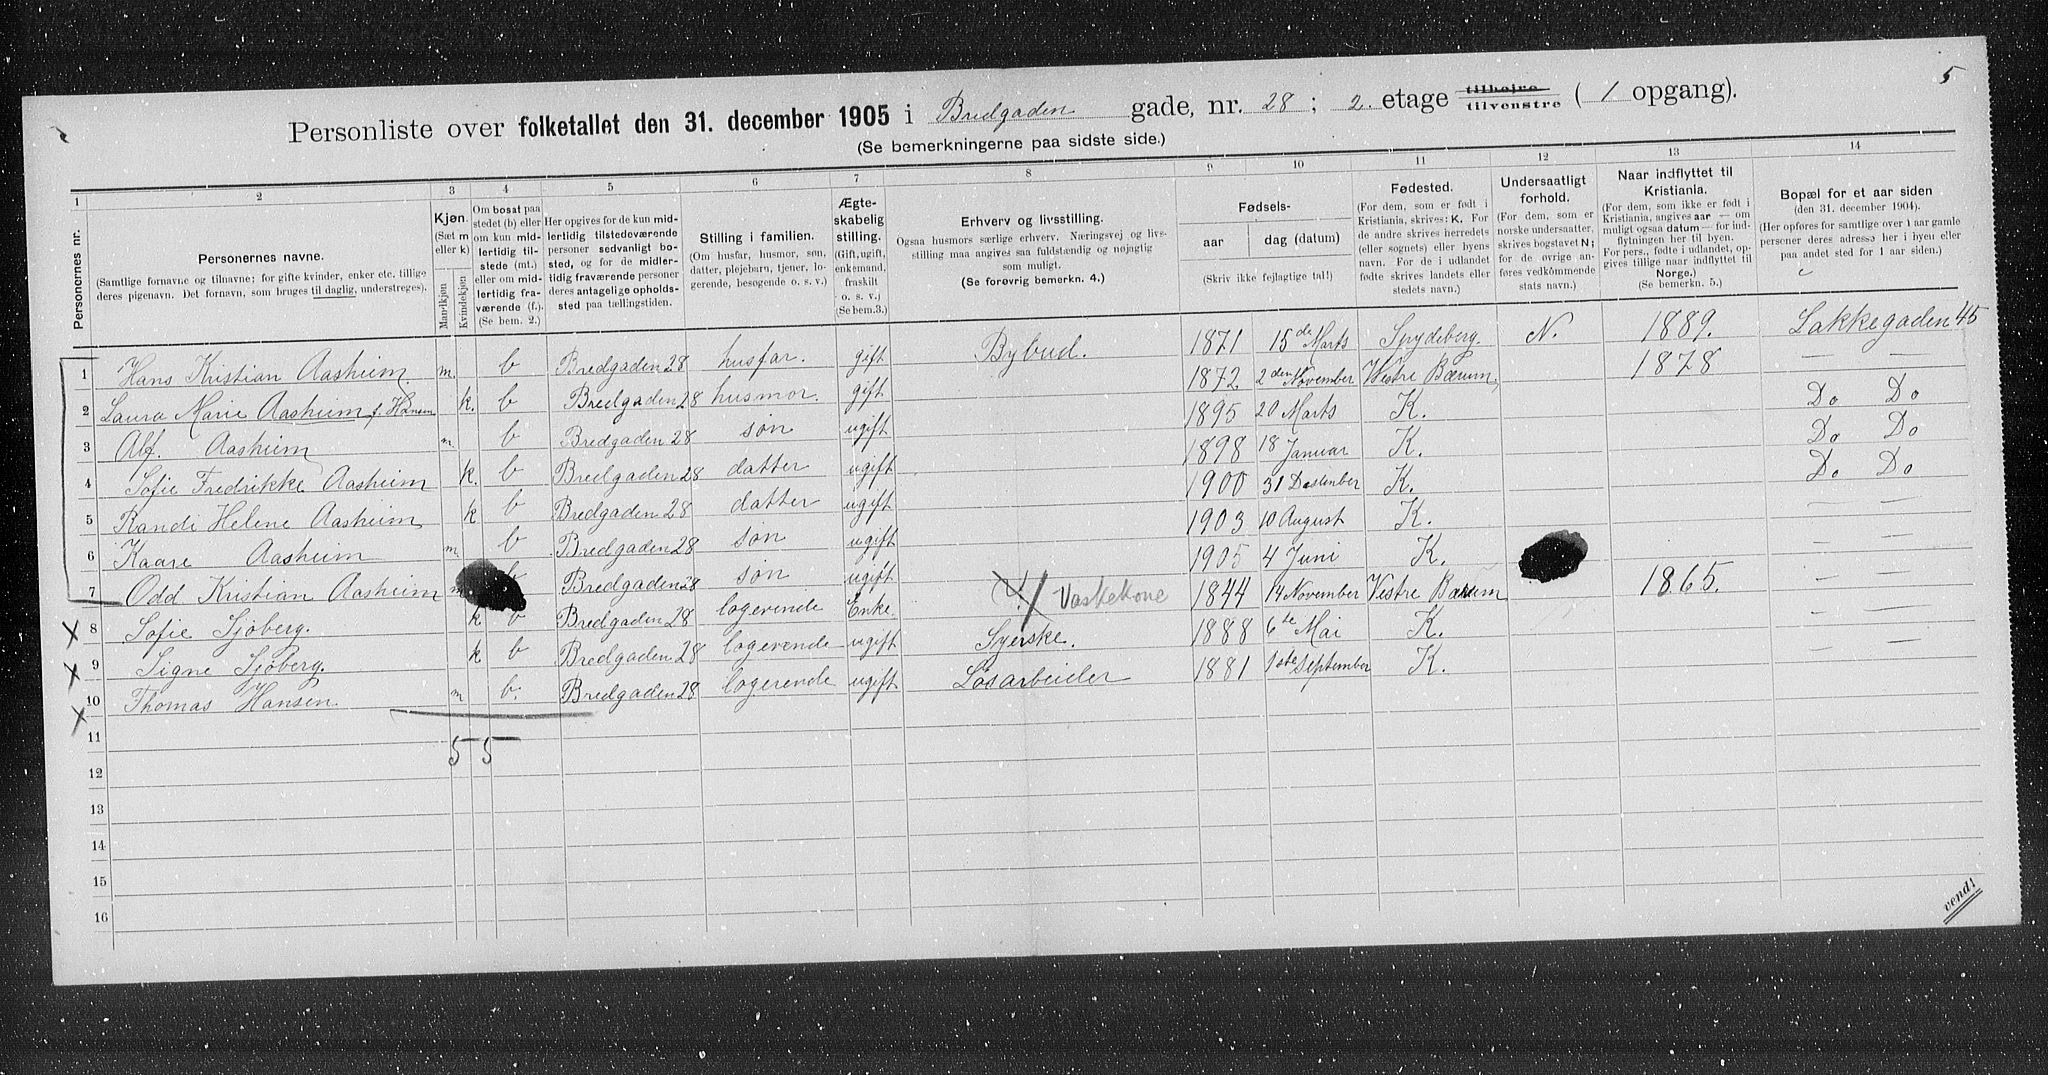 5
Personliste over folketallet den 31. december 1905 i Bredgaden gade, nr. 28; 2. etage tilhøjre tilvenstre ( 1 opgang).
(Se bemerkningerne paa sidste side.)
1 2 3 4 5 6 7 8 9 10 11 12 13 14
Personernes nr.
Personernes navne.
(Samtlige fornavne og tilnavne; for gifte kvinder, enker etc. tillige deres pigenavn. Det fornavn, som bruges til daglig, understreges).
Kjøn.
(Sæt m eller k)
Mandkjøn
Kvindekjøn
Om bosat paa stedet (b) eller om kun midlertidig tilstede (mt.) eller om midlertidig fraværende (f.). (Se bem. 2.)
Her opgives for de kun midlertidig tilstedeværende personer sedvanligt bosted, og for de midlertidig fraværende personer deres antagelige opholdssted paa tællingstiden.
Stilling i familien.
(Om husfar, husmor, søn, datter, plejebarn, tjener, logerende, besøgende o. s. v.)
Ægteskabelig stilling.
(Gift, ugift, enkemand, fraskilt o. s. v.)
(Se bem.3.)
Erhverv og livsstilling.
Ogsaa husmors særlige erhverv. Næringsvej og livsstilling maa angives saa fuldstændig og nøjagtig som muligt.
(Se forøvrig bemerkn. 4.)
Fødsels-
aar dag (datum)
(Skriv ikke fejlagtige tal!)
Fødested.
(For dem, som er født i Kristiania, skrives: K. For de andre skrives herredets (eller sognets) eller byens navn. For de i udlandet fødte skrives landets eller stedets navn.)
Undersaatligt forhold.
(For dem, som er norske undersaatter, skrives bogstavet N; for de øvrige anføres vedkommende stats navn.)
Naar indflyttet til Kristiania.
(For dem, som ikke er født i Kristiania, angives aar — om muligt ogsaa datum — for indflytningen her til byen. For pers., fødte i udlandet, opgives tillige naar indflyttet til Norge.)
(Se bemerkn. 5.)
Bopæl for et aar siden
(den 31. december 1904).
(Her opføres for samtlige over 1 aar gamle personer deres adresse her i byen eller paa andet sted for 1 aar siden.)
1 Hans Kristian Aasheim. m. b Bredgaden 28 husfar. gift Bybud. 1871 15de Marts Spydeberg. N. 1889. Lakkegaden 45
2 Laura Marie Aasheim f. Hansen k. b Bredgaden 28 husmor. gift 1872 2den November Vestre Bærum, 1878 — —
3 Alf. Aasheim m. b Bredgaden 28 søn ugift 1895 20 Marts K. Do Do
4 Sofie Fredrikke Aasheim k. b Bredgaden 28 datter ugift 1898 18 Januar K. Do Do
5 Randi Helene Aasheim k b Bredgaden 28 datter ugift 1900 31 Desember K. Do Do
6 Kaare Aasheim m. b Bredgaden 28 søn ugift 1903 10 August K. — —
7 Odd Kristian Aasheim m b Bredgaden 28 søn ugift 1905 4 Juni K. — —
8 Sofie Sjøberg. k b Bredgaden 28 logerende Enke. Vaskekone 1844 14 November Vestre Bærum 1865. — —
9 Signe Sjøberg. k b Bredgaden 28 logerende ugift Syerske. 1888 6te Mai K. — —
10 Thomas Hansen m b. Bredgaden 28 logerende ugift Løsarbeider 1881 1ste September K. — —
11
5 5
12
13
14
15
16
vend!